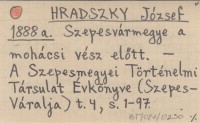 HRADSZKY József
1888 a. Szepesvármegye a
mohácsi vész előtt. —
A Szepesmegyei Történelmi
Társulat Évkönyve (Szepes-
Váralja) t. 4, s. 1-97.